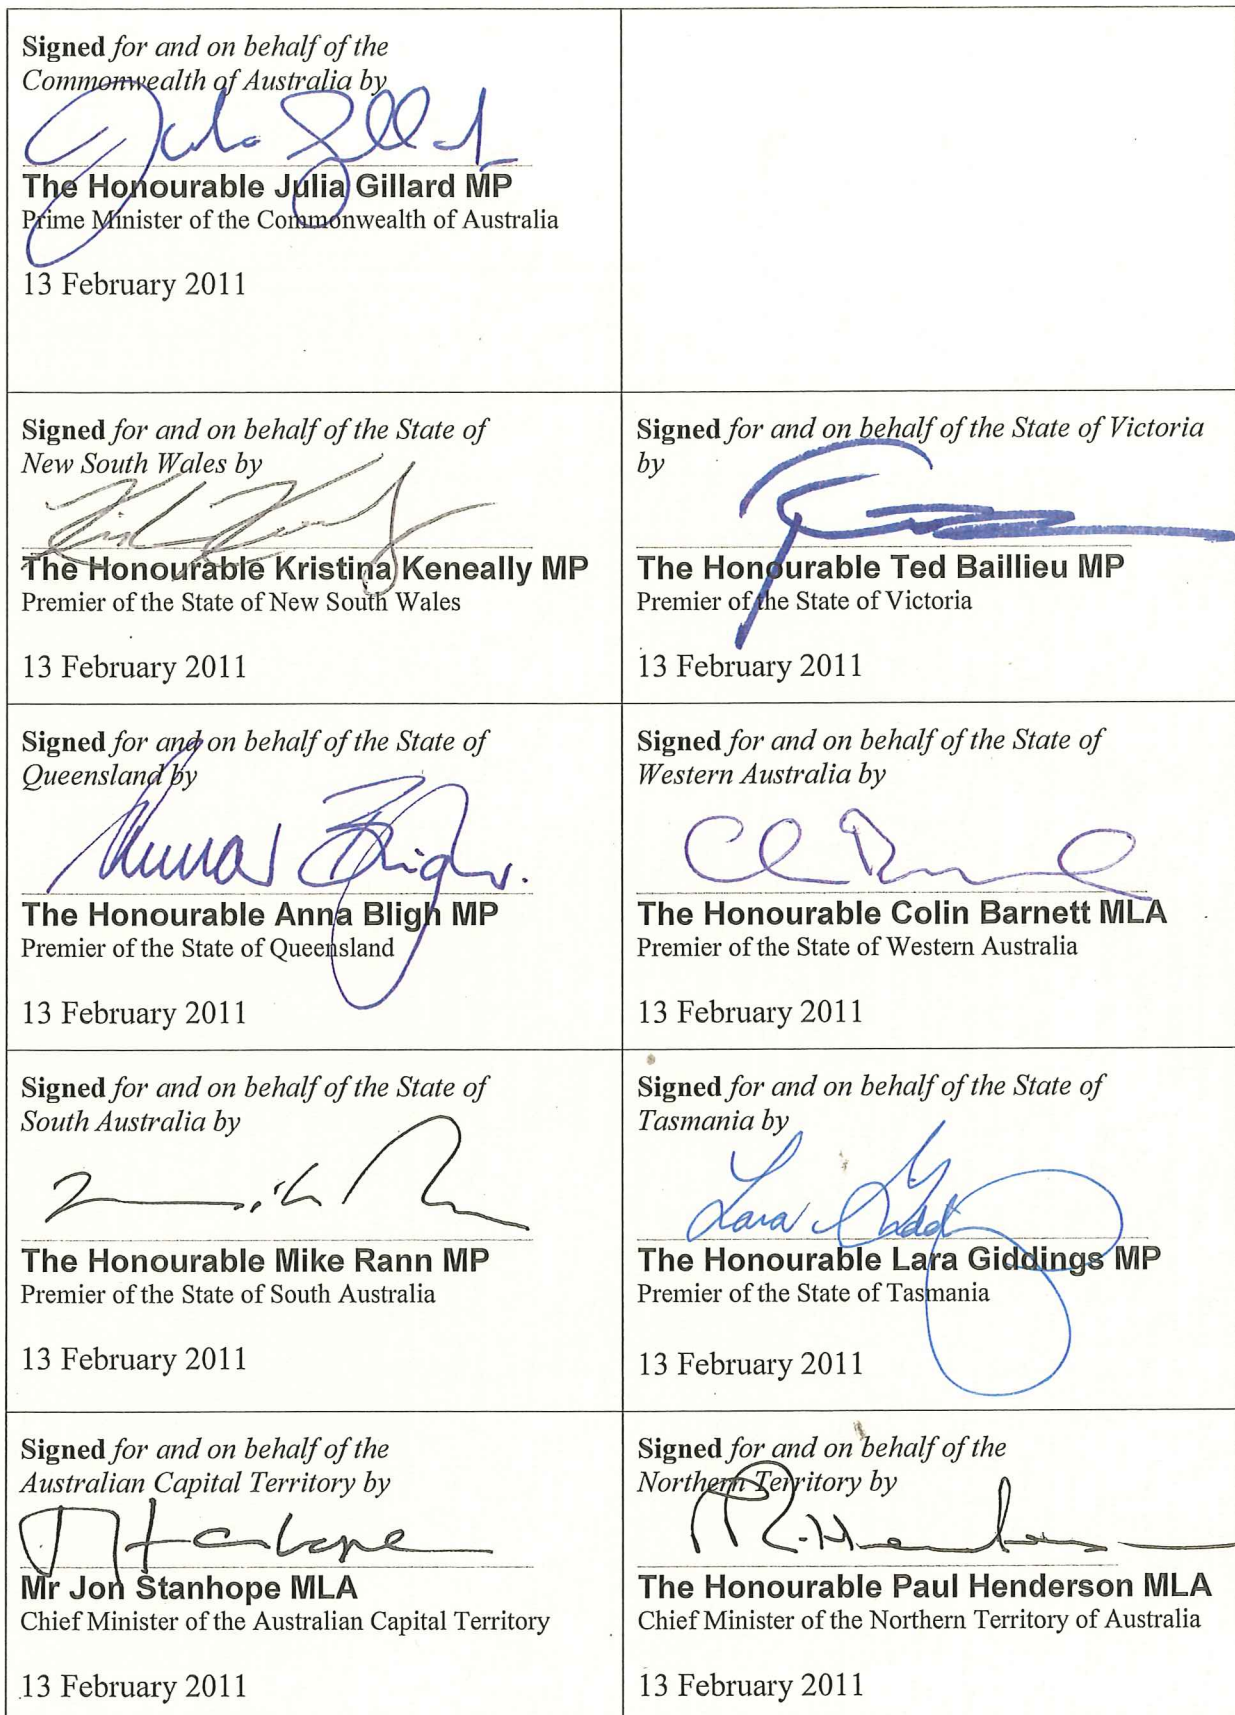 Signed for and on behalf of the
Commonwealth of Australia by
Julia Gillard
The Honourable Julia Gillard MP
Prime Minister of the Commonwealth of Australia
13 February 2011
Signed for and on behalf of the State of
New South Wales by
The Honourable Kristina Keneally MP
Premier of the State of New South Wales
13 February 2011
Signed for and on behalf of the State of Victoria
by
The Honourable Ted Baillieu MP
Premier of the State of Victoria
13 February 2011
Signed for and on behalf of the State of
Queensland by
Anna Bligh.
The Honourable Anna Bligh MP
Premier of the State of Queensland
13 February 2011
Signed for and on behalf of the State of
Western Australia by
The Honourable Colin Barnett MLA
Premier of the State of Western Australia
13 February 2011
Signed for and on behalf of the State of
South Australia by
The Honourable Mike Rann MP
Premier of the State of South Australia
13 February 2011
Signed for and on behalf of the State of
Tasmania by
Lara Giddings
The Honourable Lara Giddings MP
Premier of the State of Tasmania
13 February 2011
Signed for and on behalf of the
Australian Capital Territory by
Mr Jon Stanhope MLA
Chief Minister of the Australian Capital Territory
13 February 2011
Signed for and on behalf of the
Northern Territory by
The Honourable Paul Henderson MLA
Chief Minister of the Northern Territory of Australia
13 February 2011